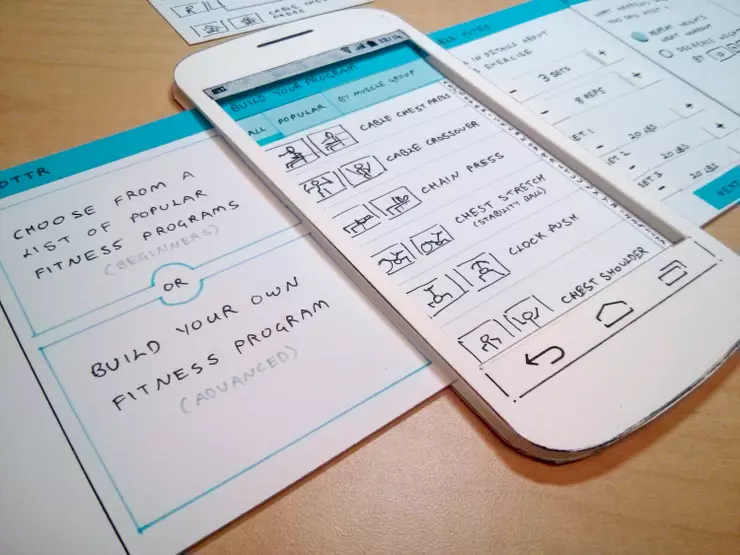 CABLE CHEST
PRESS
OTTR
CHOOSE FROM A
LIST OF POPULAR
FITNESS PROGRAMS
(BEGINNERS)
OR
BUILD YOUR OWN
FITNESS PROGRAM
(ADVANCED)
BUILD YOUR PROGRAM
ALL
POPULAR
BY MUSCLE GROUP
CABLE CHEST PRESS
CABLE CROSSOVER
CHAIN PRESS
CHEST STRETCH
(STABILITY BALL)
CLOCK PUSH
CHEST SHOULDER
IN DETAILS ABOUT
EXERCISE
- 3 SETS +
- 8 REPS +
SET 1 - 20 LBS +
SET 2 - 20 LBS +
SET 3 - 20 LBS +
NEXT
WHAT HAPPENS
REPEAT WEIGHTS
DECREASE
BY